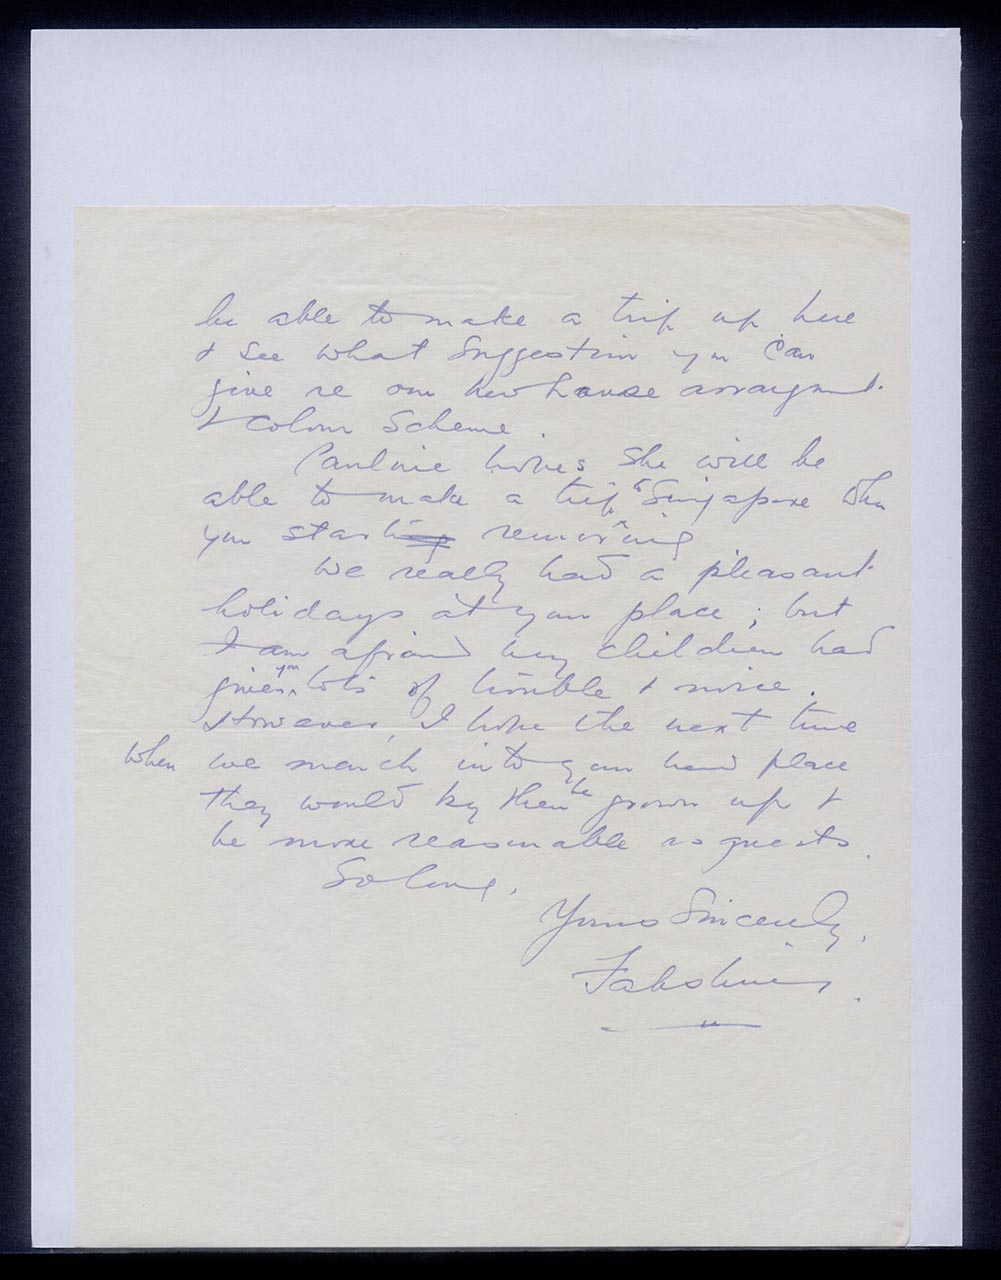 be able to make a trip up here
& see what suggestion you can
give re our new house arrangmt.
& colour scheme.
Pauline hopes she will be
able to make a trip to Singapore when
you start removing
We really had a pleasant
holidays at your place; but
I am afraid my children had
given you lots of trouble & noise.
However, I hope the next time
when we march into your new place
they would by then be grown up &
be more reasonable as guests.
So long,
Yours Sincerely,